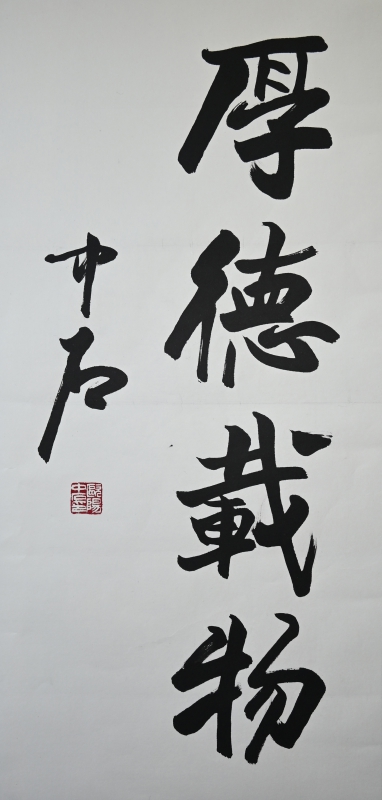 厚德載物
中石
歐陽中石